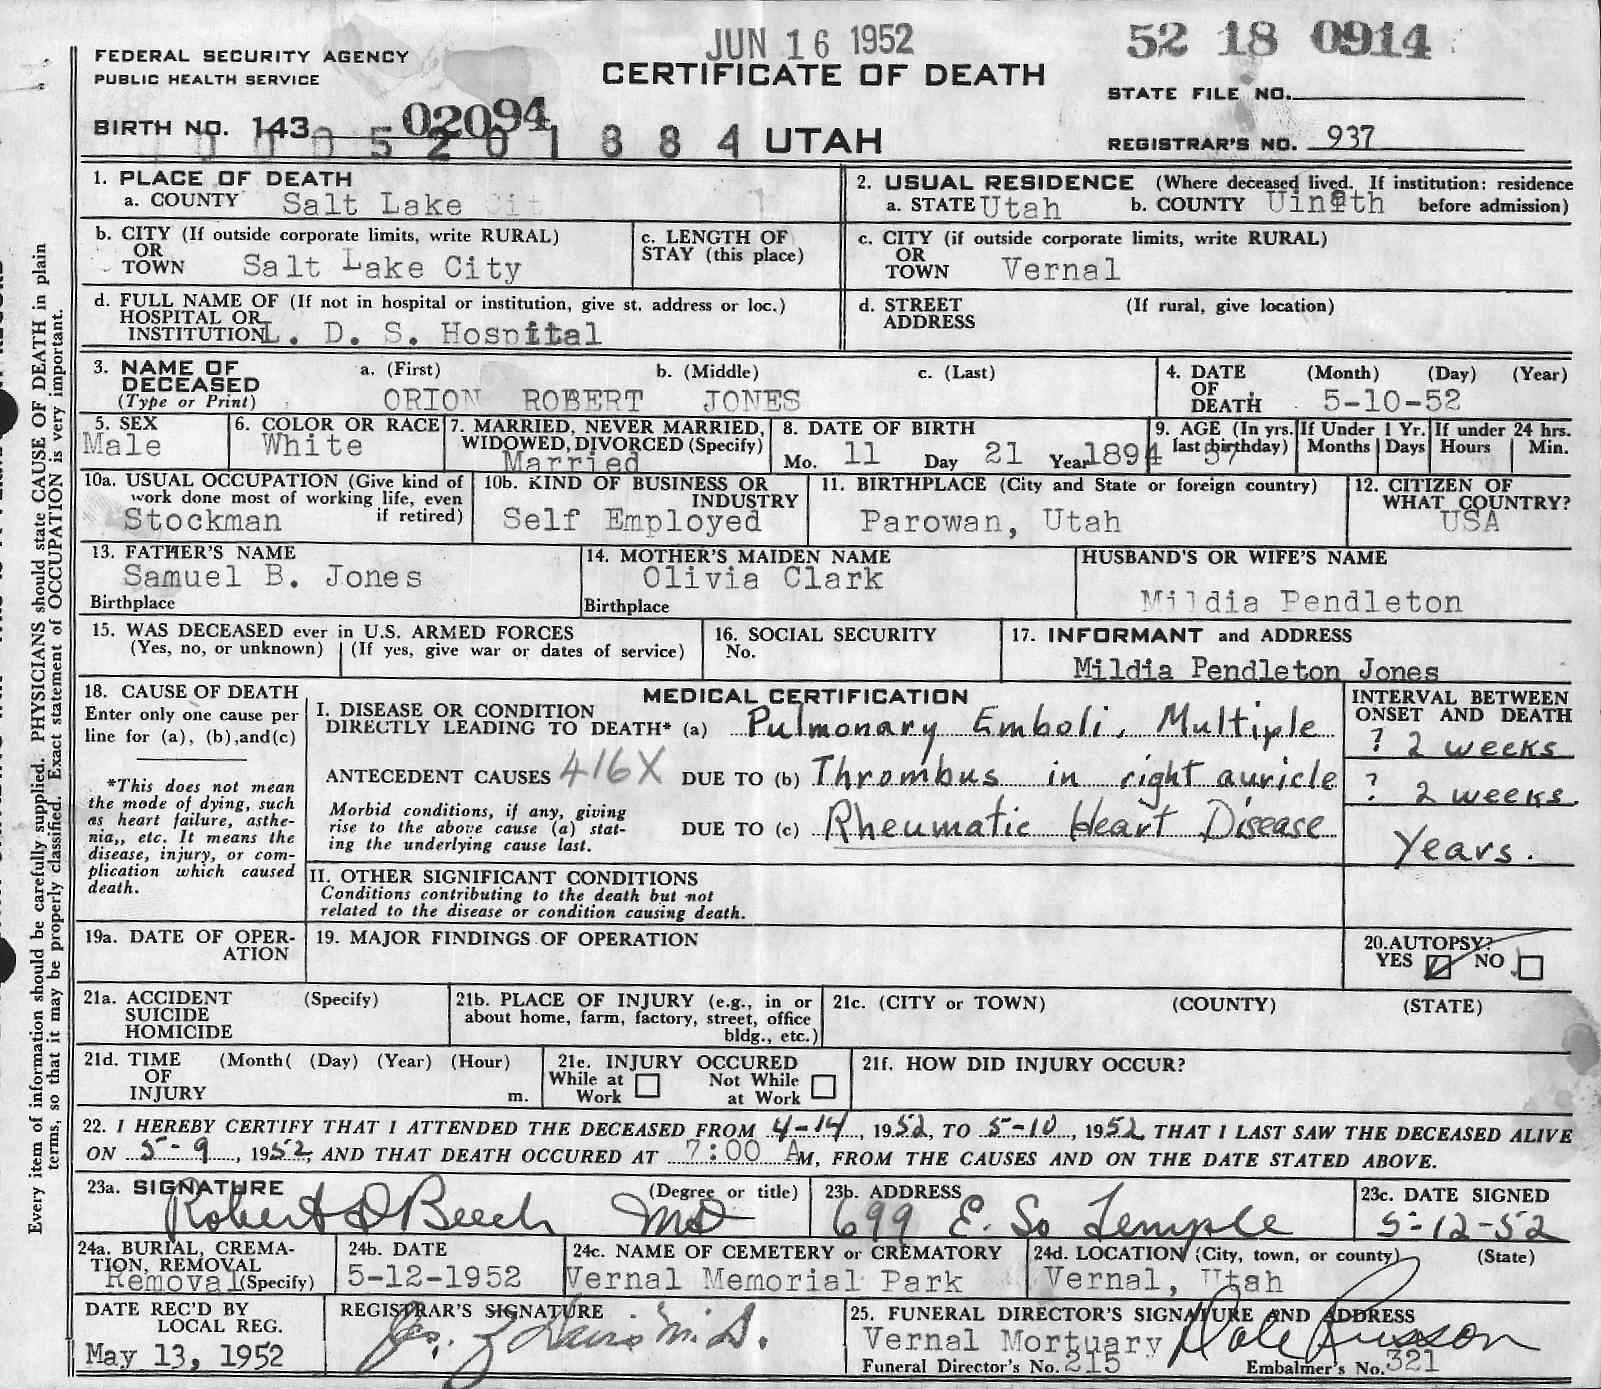 JUN 16 1952
52 18 0914
FEDERAL SECURITY AGENCY
PUBLIC HEALTH SERVICE
CERTIFICATE OF DEATH
STATE FILE NO.
BIRTH NO. 143 02094
5 2 0 1 8 8 4 UTAH
REGISTRAR'S NO. 937
1. PLACE OF DEATH
a. COUNTY Salt Lake
2. USUAL RESIDENCE (Where deceased lived. If institution: residence
a. STATE Utah b. COUNTY before admission)
b. CITY (If outside corporate limits, write RURAL)
OR
TOWN Salt Lake City
c. LENGTH OF
STAY (this place)
c. CITY (if outside corporate limits, write RURAL)
OR
TOWN Vernal
d. FULL NAME OF (If not in hospital or institution, give st. address or loc.)
HOSPITAL OR
INSTITUTION L. D. S. Hospital
d. STREET (If rural, give location)
ADDRESS
3. NAME OF a. (First) b. (Middle) c. (Last)
DECEASED
(Type or Print) ORION ROBERT JONES
4. DATE (Month) (Day) (Year)
OF
DEATH 5-10-52
5. SEX
Male
6. COLOR OR RACE
White
7. MARRIED, NEVER MARRIED,
WIDOWED, DIVORCED (Specify)
Married
8. DATE OF BIRTH
Mo. 11 Day 21 Year 1894
9. AGE (In yrs.
last birthday) 57
If Under 1 Yr.
Months Days
If under 24 hrs.
Hours Min.
10a. USUAL OCCUPATION (Give kind of
work done most of working life, even
if retired)
Stockman
10b. KIND OF BUSINESS OR
INDUSTRY
Self Employed
11. BIRTHPLACE (City and State or foreign country)
Parowan, Utah
12. CITIZEN OF
WHAT COUNTRY?
USA
13. FATHER'S NAME
Samuel B. Jones
Birthplace
14. MOTHER'S MAIDEN NAME
Olivia Clark
Birthplace
HUSBAND'S OR WIFE'S NAME
Mildia Pendleton
15. WAS DECEASED ever in U.S. ARMED FORCES
(Yes, no, or unknown) (If yes, give war or dates of service)
16. SOCIAL SECURITY
No.
17. INFORMANT and ADDRESS
Mildia Pendleton Jones
18. CAUSE OF DEATH
Enter only one cause per
line for (a), (b),and(c)
*This does not mean
the mode of dying, such
as heart failure, asthe-
nia,, etc. It means the
disease, injury, or com-
plication which caused
death.
MEDICAL CERTIFICATION
I. DISEASE OR CONDITION
DIRECTLY LEADING TO DEATH* (a) Pulmonary Emboli, Multiple
ANTECEDENT CAUSES 416X DUE TO (b) Thrombus in right auricle
Morbid conditions, if any, giving
rise to the above cause (a) stat-
ing the underlying cause last.
DUE TO (c) Rheumatic Heart Disease
INTERVAL BETWEEN
ONSET AND DEATH
? 2 weeks
? 2 weeks
Years.
II. OTHER SIGNIFICANT CONDITIONS
Conditions contributing to the death but not
related to the disease or condition causing death.
19a. DATE OF OPER-
ATION
19. MAJOR FINDINGS OF OPERATION
20. AUTOPSY?
YES NO
21a. ACCIDENT (Specify)
SUICIDE
HOMICIDE
21b. PLACE OF INJURY (e.g., in or
about home, farm, factory, street, office
bldg., etc.)
21c. (CITY or TOWN) (COUNTY) (STATE)
21d. TIME (Month( (Day) (Year) (Hour)
OF
INJURY m.
21e. INJURY OCCURED
While at Not While
Work at Work
21f. HOW DID INJURY OCCUR?
22. I HEREBY CERTIFY THAT I ATTENDED THE DECEASED FROM 4-14, 1952, TO 5-10, 1952 THAT I LAST SAW THE DECEASED ALIVE
ON 5-9, 1952, AND THAT DEATH OCCURED AT 7:00 AM, FROM THE CAUSES AND ON THE DATE STATED ABOVE.
23a. SIGNATURE (Degree or title)
Robert D Beech MD
23b. ADDRESS
699 E. So Temple
23c. DATE SIGNED
5-12-52
24a. BURIAL, CREMA-
TION, REMOVAL
Removal (Specify)
24b. DATE
5-12-1952
24c. NAME OF CEMETERY or CREMATORY
Vernal Memorial Park
24d. LOCATION (City, town, or county) (State)
Vernal, Utah
DATE REC'D BY
LOCAL REG.
May 13, 1952
REGISTRAR'S SIGNATURE
25. FUNERAL DIRECTOR'S SIGNATURE AND ADDRESS
Vernal Mortuary Dale Russon
Funeral Director's No. 215 Embalmer's No. 321
Every item of information should be carefully supplied. PHYSICIANS should state CAUSE OF DEATH in plain
terms, so that it may be properly classified. Exact statement of OCCUPATION is very important.